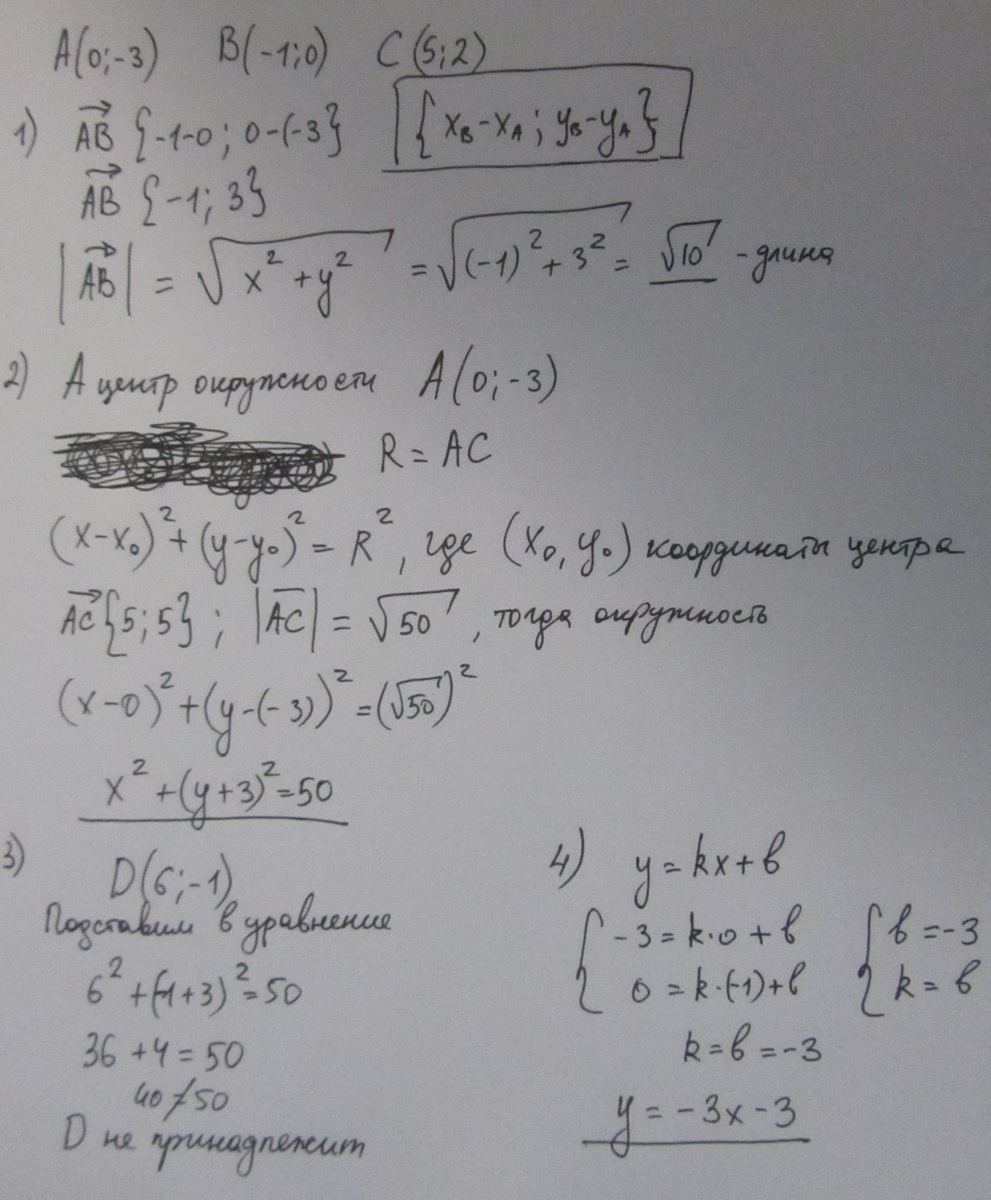 A(0;-3) B(-1;0) C(5;2)
1) AB {-1-0; 0-(-3} {x_B-x_A; y_B-y_A}
AB {-1; 3}
|AB| = √x²+y² = √(-1)²+3² = √10 - длина
2) A центр окружности A(0;-3)
R = AC
(x-x₀)²+(y-y₀)² = R², где (x₀, y₀) координаты центра
AC{5;5}; |AC| = √50, тогда окружность
(x-0)²+(y-(-3))²=(√50)²
x²+(y+3)²=50
3) D(6;-1)
Подставим в уравнение
6²+(-1+3)²=50
36+4=50
40≠50
D не принадлежит
4) y=kx+b
{ -3=k·0+b { b=-3
0=k·(-1)+b k=b
k=b=-3
y=-3x-3